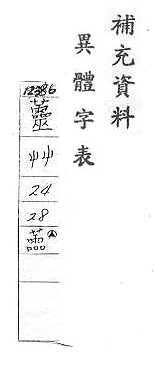 補充資料
異體字表
12386
蘦
艸
24
28